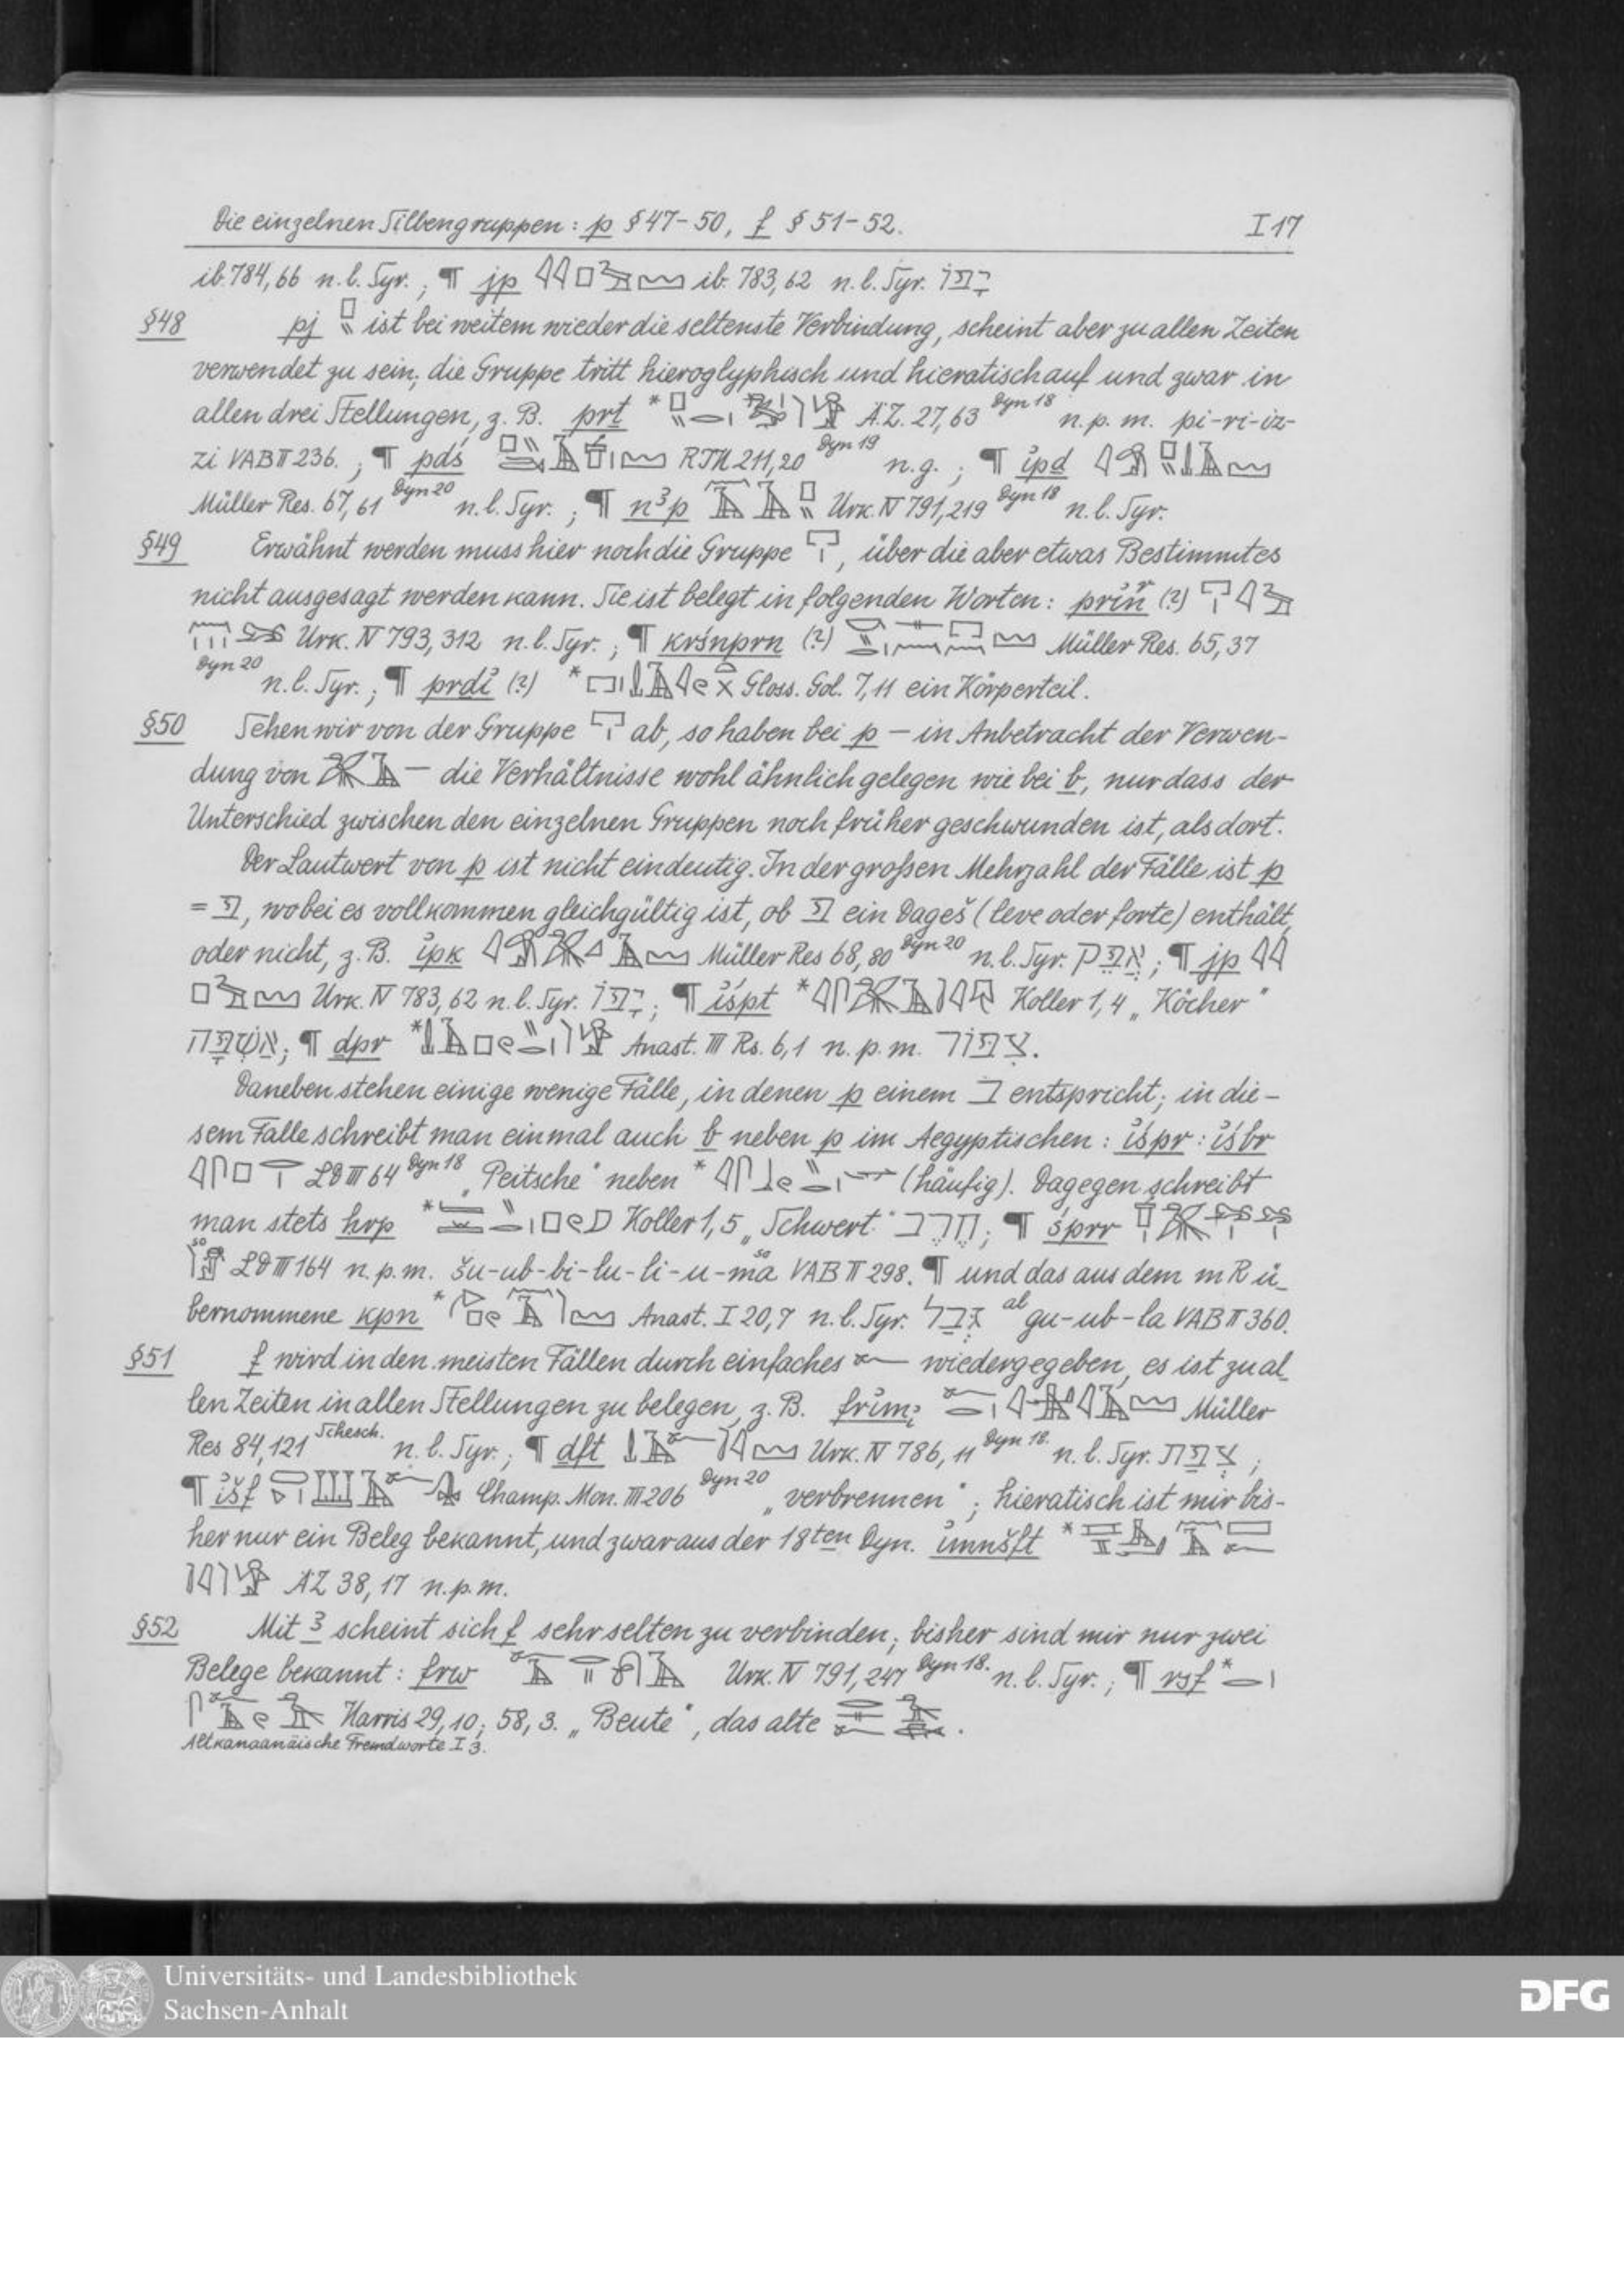 Die einzelnen Silbengruppen: p § 47-50, f § 51-52. I 17
ib. 784,66 n. l. Syr. ; ¶ jp ib. 783,62 n. l. Syr. יפו
§48 pj ist bei weitem wieder die seltenste Verbindung, scheint aber zu allen Zeiten
verwendet zu sein; die Gruppe tritt hieroglyphisch und hieratisch auf und zwar in
allen drei Stellungen, z. B. prt * ÄZ. 27,63 Dyn 18 n. p. m. pi-ri-iz-
zi VAB II 236. ; ¶ pdś 211,20 Dyn 19 n. g. ; ¶ ỉpd
Müller Res. 67,61 Dyn 20 n. l. Syr. ; ¶ n3p Urk. IV 791,219 Dyn 18 n. l. Syr.
§49 Erwähnt werden muss hier noch die Gruppe , über die aber etwas Bestimmtes
nicht ausgesagt werden kann. Sie ist belegt in folgenden Worten: (?)
Urk. IV 793,312 n. l. Syr. ; ¶ krśnprn (?) Müller Res. 65,37
Dyn 20 n. l. Syr. ; ¶ prdỉ (?) * Gloss. Gol. 7,11 ein Körperteil.
§50 Sehen wir von der Gruppe ab, so haben bei p – in Anbetracht der Verwen-
dung von – die Verhältnisse wohl ähnlich gelegen wie bei b, nur dass der
Unterschied zwischen den einzelnen Gruppen noch früher geschwunden ist, als dort.
Der Lautwert von p ist nicht eindeutig. In der großen Mehrzahl der Fälle ist p
= פ, wobei es vollkommen gleichgültig ist, ob פ ein Dageš (leve oder forte) enthält,
oder nicht, z. B. ỉpk Müller Res 68,80 Dyn 20 n. l. Syr. אפק ; ¶ jp
Urk. IV 783,62 n. l. Syr. יפו ; ¶ ỉśpt * Koller 1,4 „Köcher“
אשפה ; ¶ dpr * Anast. III Rs. 6,1 n. p. m. צפור.
Daneben stehen einige wenige Fälle, in denen p einem ב entspricht; in die-
sem Falle schreibt man einmal auch b neben p im Aegyptischen: ỉśpr : ỉśbr
LD III 64 Dyn 18 „Peitsche“ neben * (häufig). Dagegen schreibt
man stets hrp * Koller 1,5 „Schwert“ חרב ; ¶ śprr
so LD III 164 n. p. m. šu-ub-bi-lu-li-u-ma so VAB II 298. ¶ und das aus dem mR ü-
bernommene kpn * Anast. I 20,7 n. l. Syr. גבל al gu-ub-la VAB II 360.
§51 f wird in den meisten Fällen durch einfaches wiedergegeben, es ist zu al-
len Zeiten in allen Stellungen zu belegen, z. B. Müller
Res 84,121 Schesch. n. l. Syr. ; ¶ dft Urk. IV 786,11 Dyn 18. n. l. Syr. צפת ;
¶ ỉšf Champ. Mon. III 206 Dyn 20 „verbrennen“ ; hieratisch ist mir bis-
her nur ein Beleg bekannt, und zwar aus der 18ten Dyn. ỉmnšft *
ÄZ 38,17 n. p. m.
§52 Mit 3 scheint sich f sehr selten zu verbinden; bisher sind mir nur zwei
Belege bekannt: frw Urk. IV 791,247 Dyn 18. n. l. Syr. ; ¶ rsf *
Harris 29,10; 58,3. „Beute“, das alte .
Altkanaanäische Fremdworte I 3.
Universitäts- und Landesbibliothek
Sachsen-Anhalt
DFG